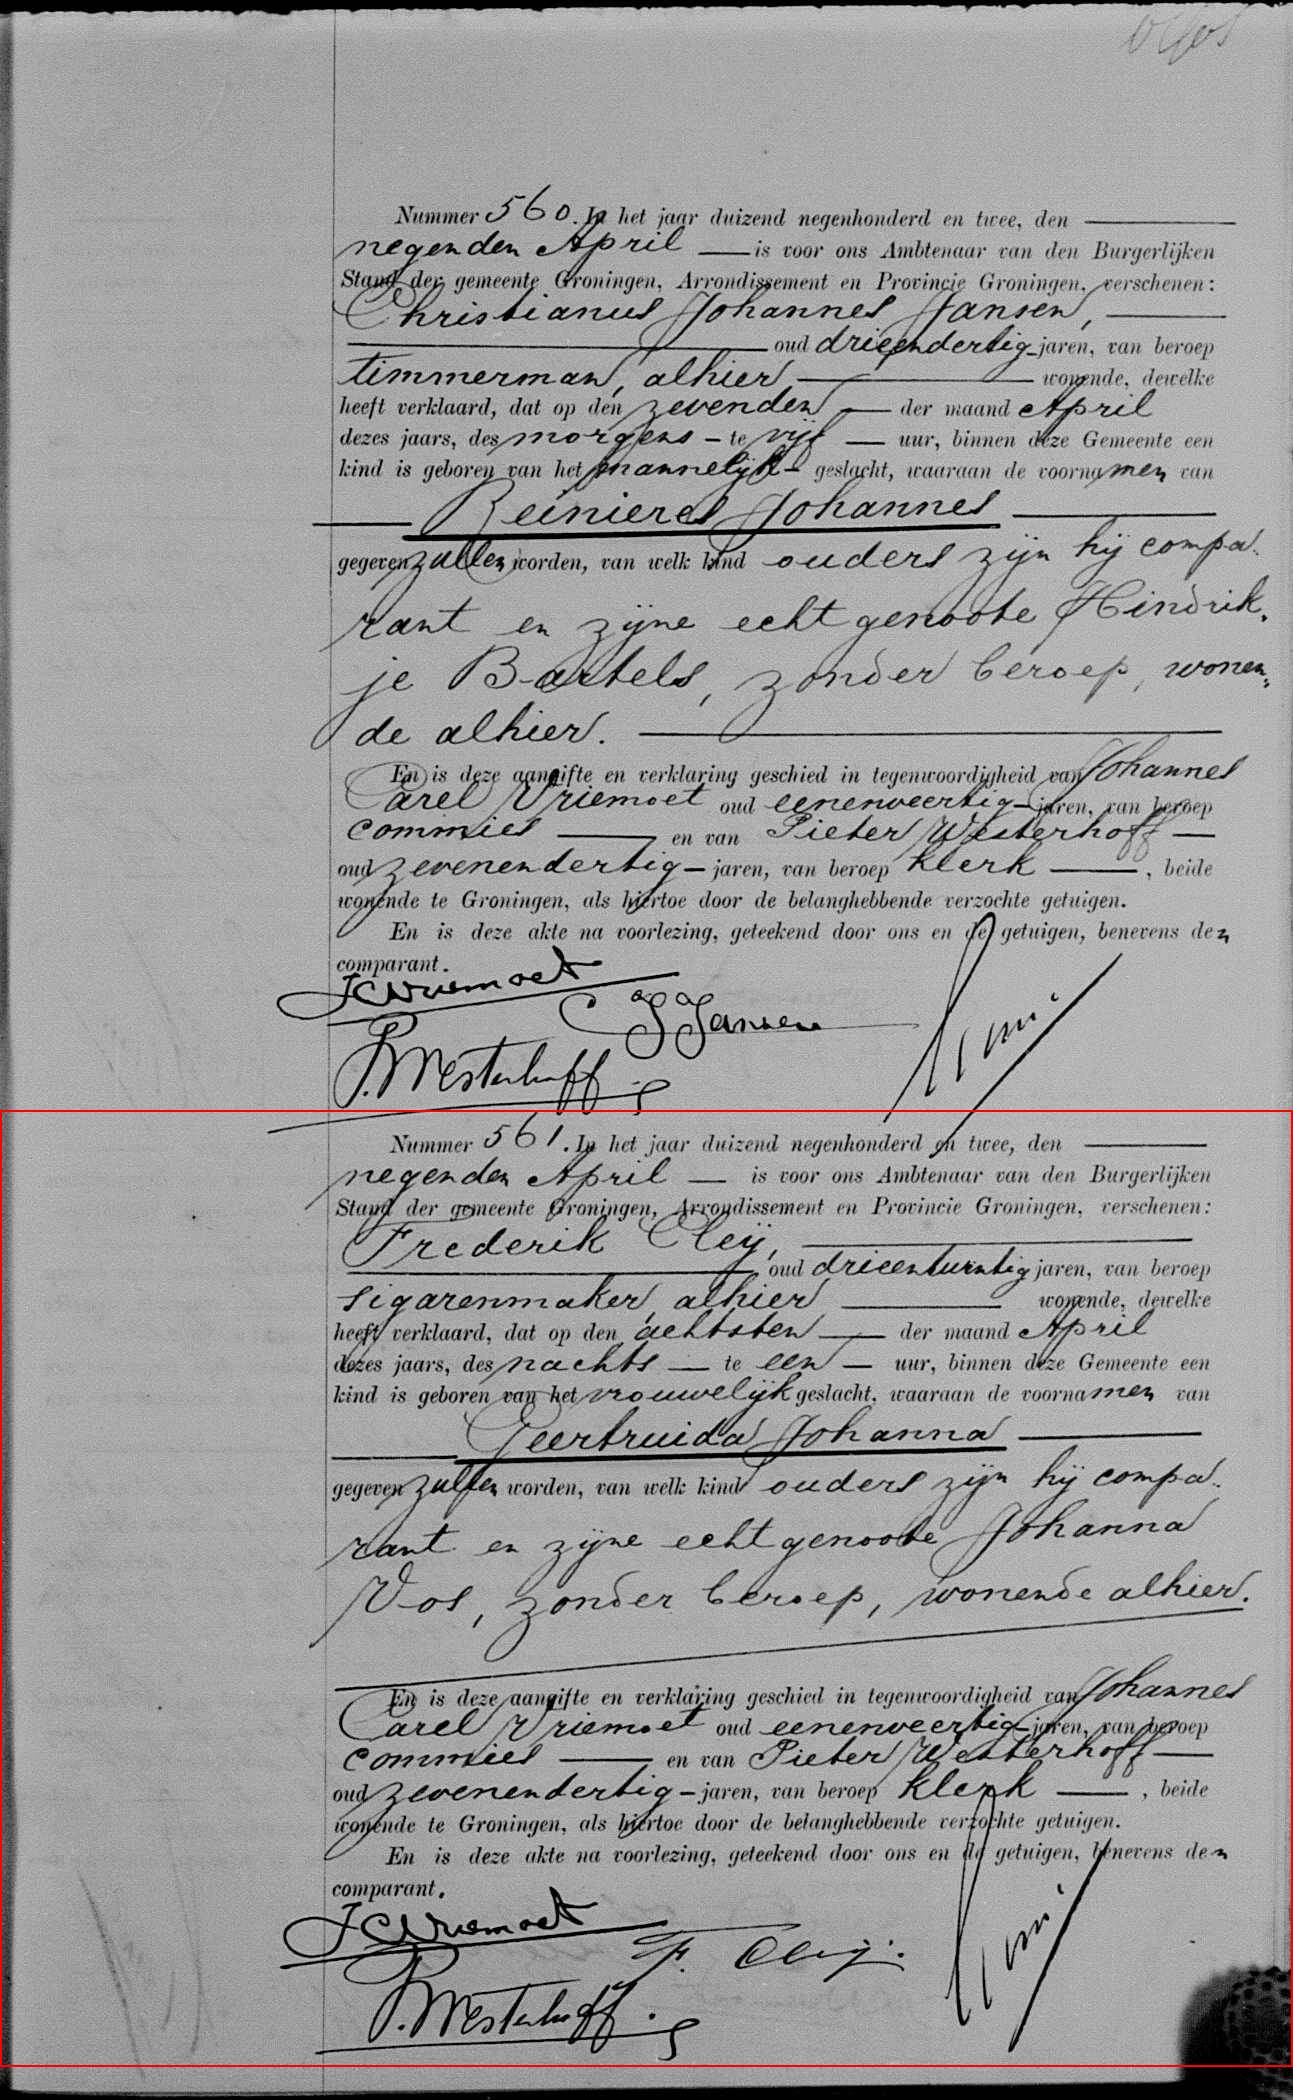 Nummer 560. In het jaar duizend negenhonderd en twee, den
negenden April — is voor ons Ambtenaar van den Burgerlijken
Stand der gemeente Groningen, Arrondissement en Provincie Groningen, verschenen:
Christianus Johannes Jansen,
oud drieendertig jaren, van beroep
timmerman, alhier — wonende, dewelke
heeft verklaard, dat op den zevenden — der maand April
dezes jaars, des morgens – te vijf — uur, binnen deze Gemeente een
kind is geboren van het mannelijk – geslacht, waaraan de voornamen van
Reinieres Johannes
gegeven zullen worden, van welk kind ouders zijn hij compa-
rant en zijne echtgenoote Hindrik-
je Bartels, zonder beroep, wonen-
de alhier.
En is deze aangifte en verklaring geschied in tegenwoordigheid van Johannes
Carel Vriemoet oud eenenveertig – jaren, van beroep
commies — en van Pieter Westerhoff —
oud zevenendertig – jaren, van beroep klerk —, beide
wonende te Groningen, als hiertoe door de belanghebbende verzochte getuigen.
En is deze akte na voorlezing, geteekend door ons en de getuigen, benevens den
comparant.
JCVriemoet
CJJansen
P. Westerhoff
Nummer 561. In het jaar duizend negenhonderd en twee, den
negenden April — is voor ons Ambtenaar van den Burgerlijken
Stand der gemeente Groningen, Arrondissement en Provincie Groningen, verschenen:
Frederik Cleij,
oud drieentwintig jaren, van beroep
sigarenmaker, alhier — wonende, dewelke
heeft verklaard, dat op den achtsten — der maand April
dezes jaars, des nachts — te een — uur, binnen deze Gemeente een
kind is geboren van het vrouwelijk geslacht, waaraan de voornamen van
Geertruida Johanna
gegeven zullen worden, van welk kind ouders zijn hij compa-
rant en zijne echtgenoote Johanna
Vos, zonder beroep, wonende alhier.
En is deze aangifte en verklaring geschied in tegenwoordigheid van Johannes
Carel Vriemoet oud eenenveertig – jaren, van beroep
commies — en van Pieter Westerhoff —
oud zevenendertig – jaren, van beroep klerk —, beide
wonende te Groningen, als hiertoe door de belanghebbende verzochte getuigen.
En is deze akte na voorlezing, geteekend door ons en de getuigen, benevens den
comparant.
JCVriemoet
F. Cleij.
P. Westerhoff.